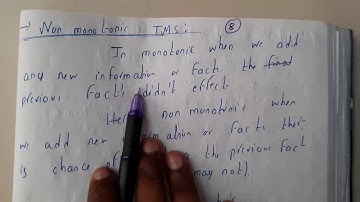 → Non monotonic TMS:- 8
In monotonic when we add
any new information or fact the
previous fact didn't effect
non monotonic when
we add new or fact, there
is chance the previous fact
may not).